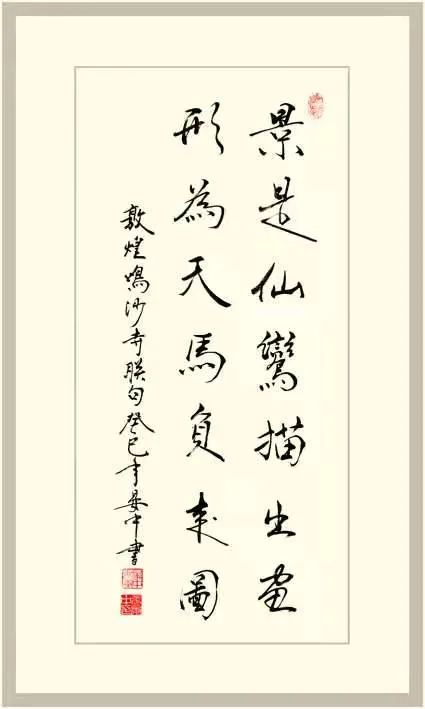 景是仙鸞描出畫
形為天馬負来圖
敦煌鳴沙寺联句癸巳年晏中書